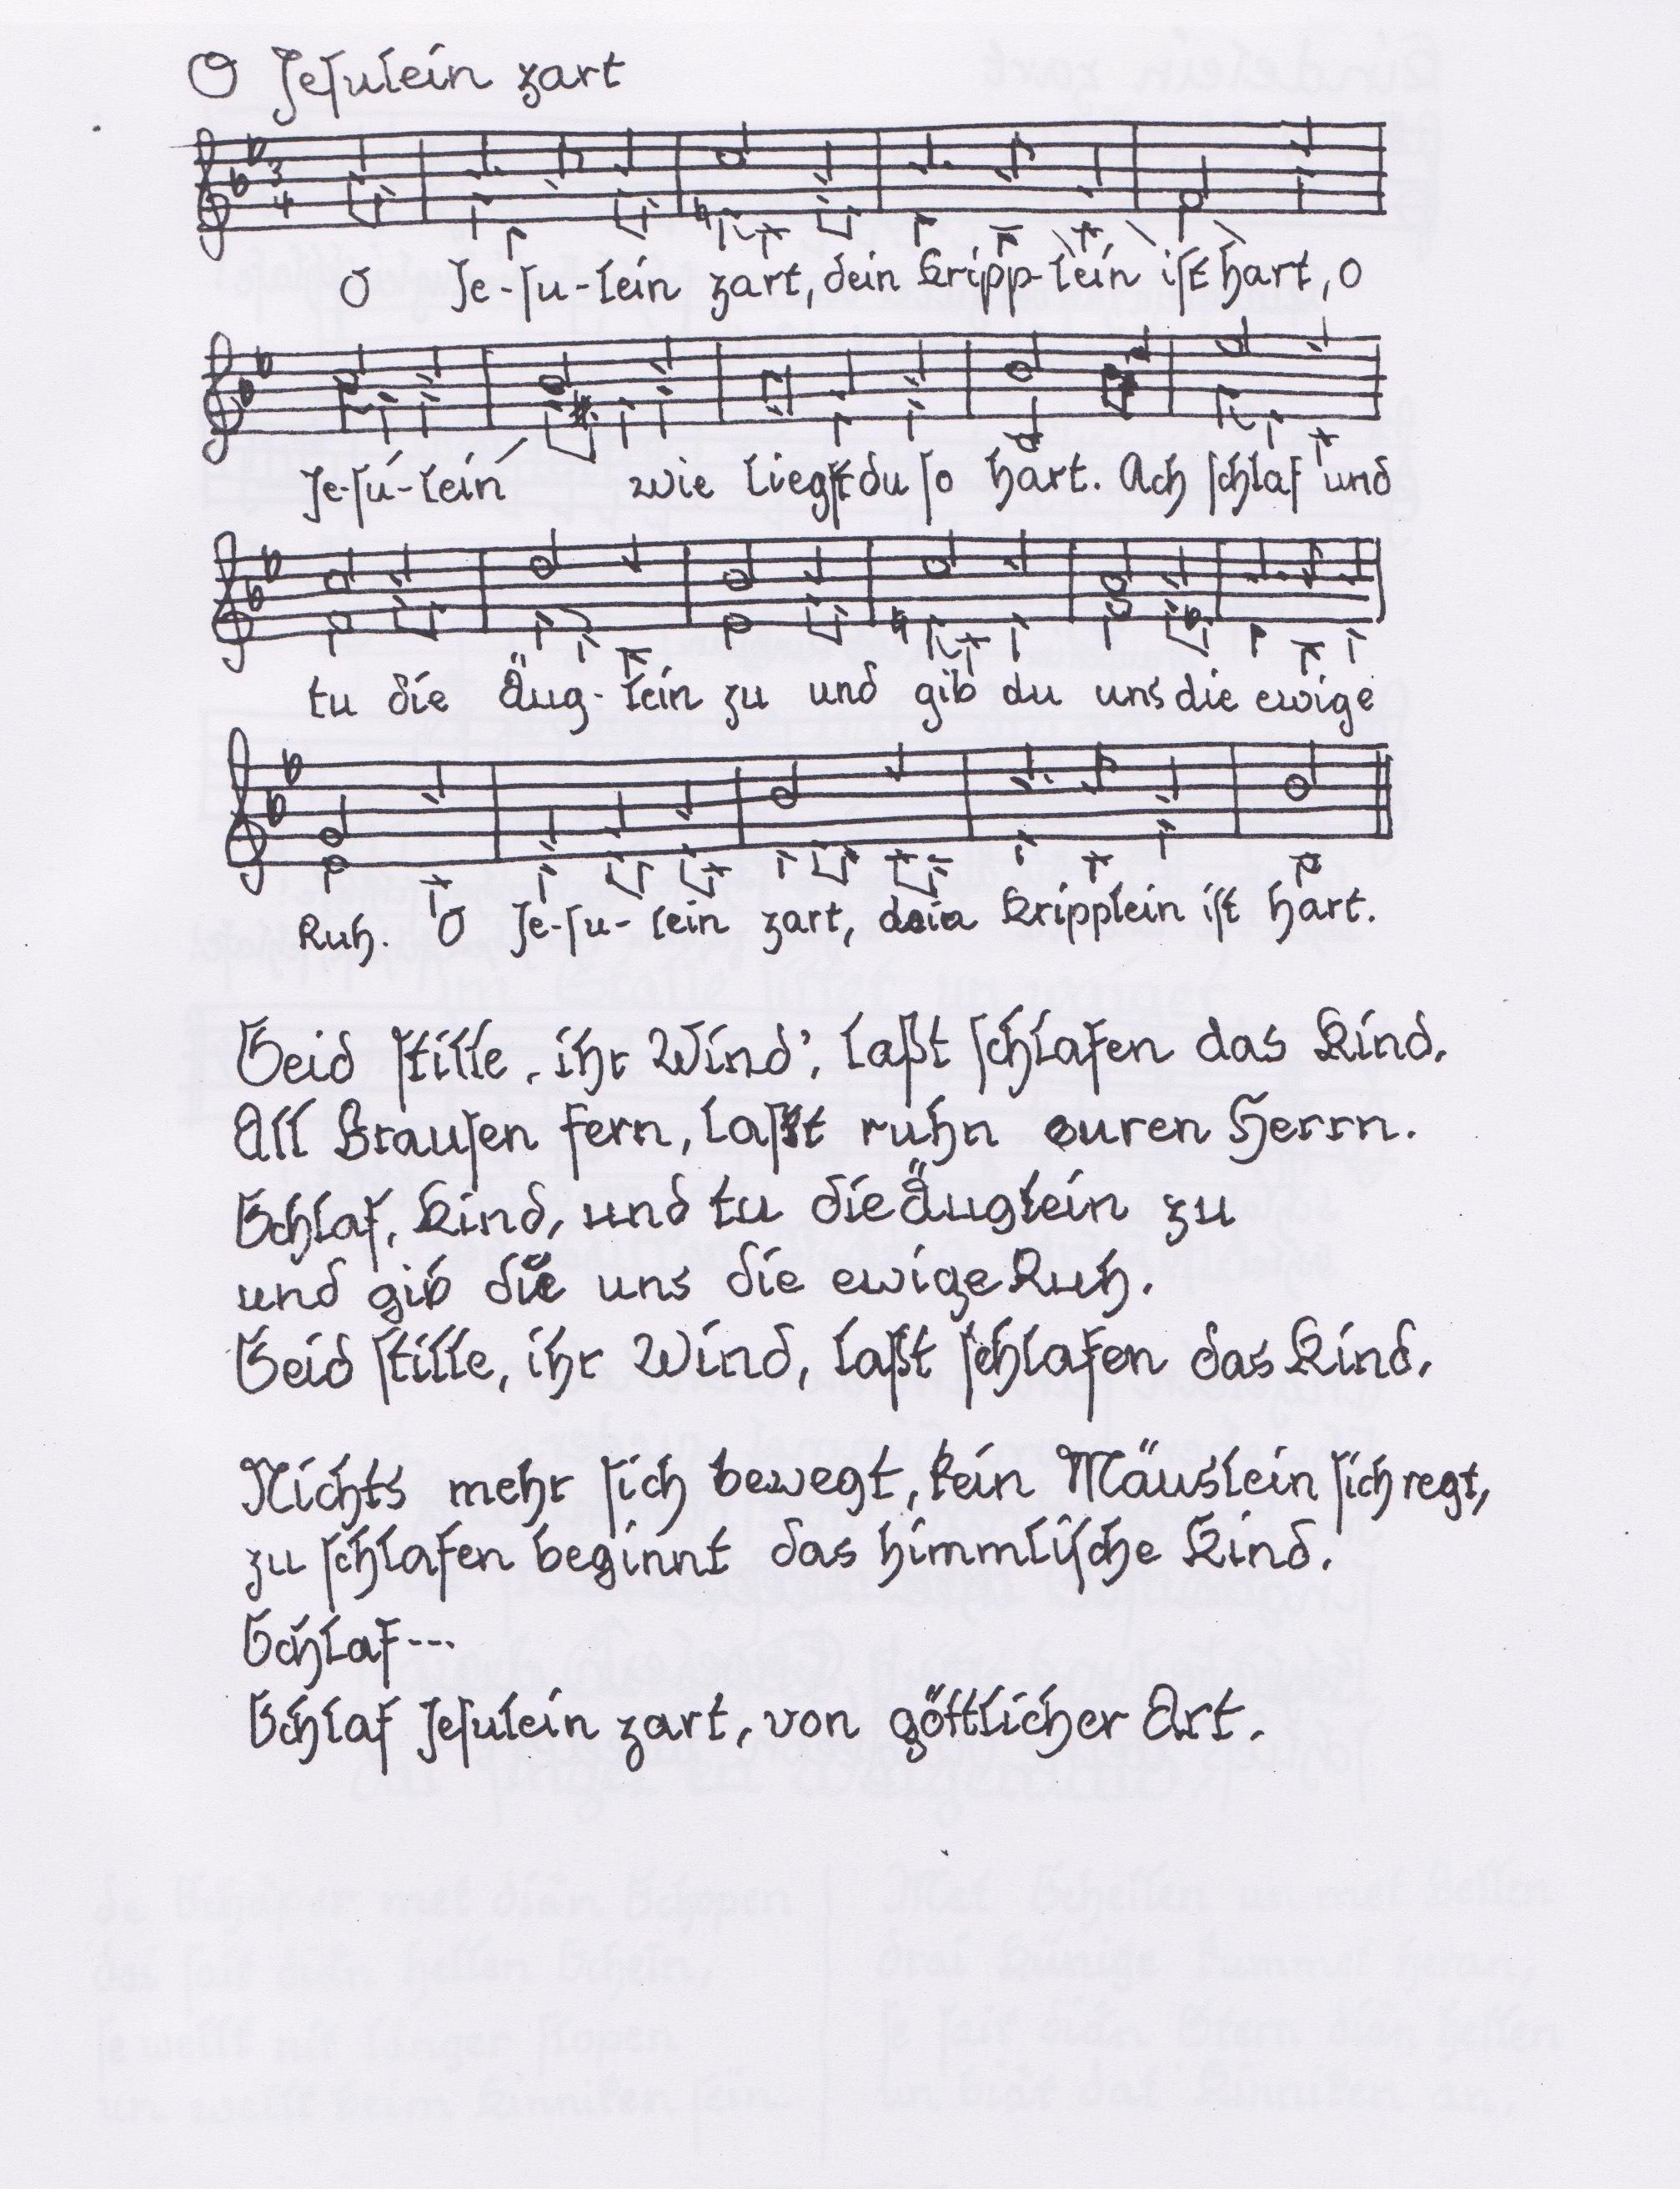 O Jeſulein zart
3
4
O Je-ſu-lein zart, dein Kripp-lein iſt hart, O
Je-ſu-lein wie liegſt du ſo hart. Ach ſchlaf und
tu die Äug-lein zu und gib du uns die ewige
Ruh. O Je-ſu-lein zart, dein Kripplein iſt hart.
Seid ſtille, ihr Wind', laßt ſchlafen das Kind.
All Brauſen fern, laßt ruhn euren Herrn.
Schlaf, Kind, und tu die Äuglein zu
und gib du uns die ewige Ruh.
Seid ſtille, ihr Wind, laßt ſchlafen das Kind.
Nichts mehr ſich bewegt, kein Mäuslein ſich regt,
zu ſchlafen beginnt das himmliſche Kind.
Schlaf---
Schlaf Jeſulein zart, von göttlicher Art.